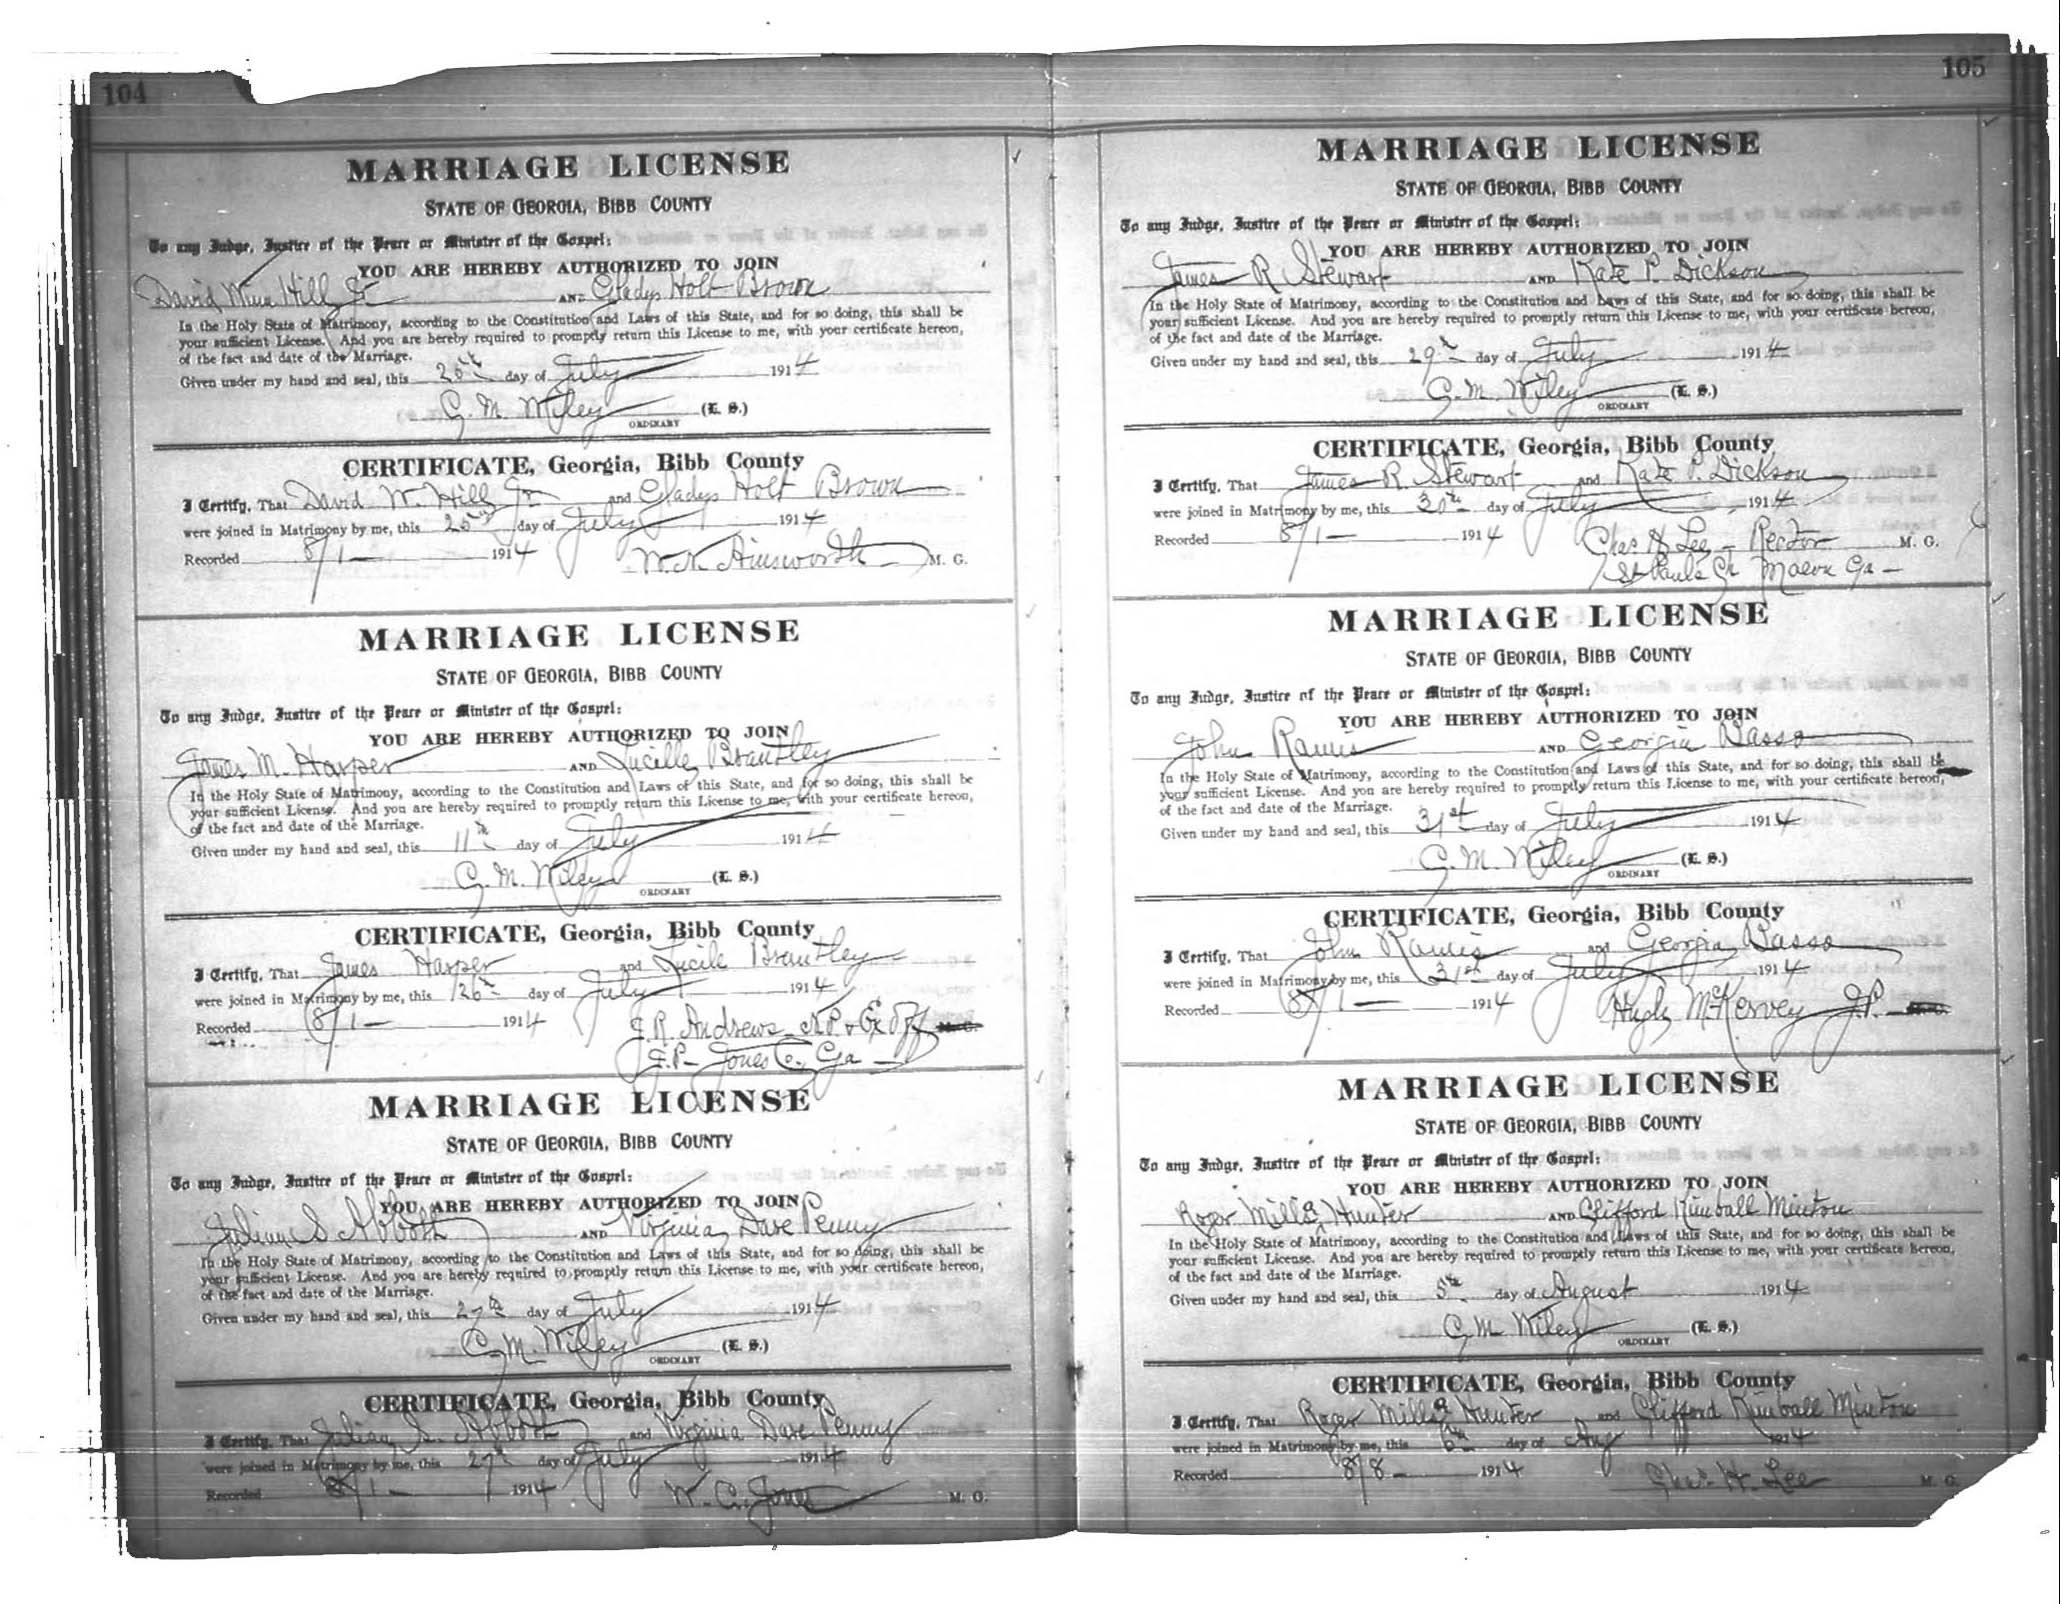 104
MARRIAGE LICENSE
STATE OF GEORGIA, BIBB COUNTY
To any Judge, Justice of the Peace or Minister of the Gospel:
YOU ARE HEREBY AUTHORIZED TO JOIN
David Hill Jr AND Gladys Holt Brown
In the Holy State of Matrimony, according to the Constitution and Laws of this State, and for so doing, this shall be
your sufficient License. And you are hereby required to promptly return this License to me, with your certificate hereon,
of the fact and date of the Marriage.
Given under my hand and seal, this day of July 1914
C. M. Wiley (L. S.)
ORDINARY
CERTIFICATE, Georgia, Bibb County
I Certify, That David W. Hill Jr and Gladys Holt Brown
were joined in Matrimony by me, this day of July 1914
Recorded 8/1 — 1914 W. N. Ainsworth M. G.
MARRIAGE LICENSE
STATE OF GEORGIA, BIBB COUNTY
To any Judge, Justice of the Peace or Minister of the Gospel:
YOU ARE HEREBY AUTHORIZED TO JOIN
James M. Harper AND Lucille Brantley
In the Holy State of Matrimony, according to the Constitution and Laws of this State, and for so doing, this shall be
your sufficient License. And you are hereby required to promptly return this License to me, with your certificate hereon,
of the fact and date of the Marriage.
Given under my hand and seal, this 11th day of July 1914
C. M. Wiley (L. S.)
ORDINARY
CERTIFICATE, Georgia, Bibb County
I Certify, That James Harper and Lucile Brantley
were joined in Matrimony by me, this 26th day of July 1914
Recorded 8/1 — 1914 J. R. Andrews N P & Ex Off M. G.
J. P. Jones Co, Ga
MARRIAGE LICENSE
STATE OF GEORGIA, BIBB COUNTY
To any Judge, Justice of the Peace or Minister of the Gospel:
YOU ARE HEREBY AUTHORIZED TO JOIN
Julian S. Abbott AND Virginia Dare Penny
In the Holy State of Matrimony, according to the Constitution and Laws of this State, and for so doing, this shall be
your sufficient License. And you are hereby required to promptly return this License to me, with your certificate hereon,
of the fact and date of the Marriage.
Given under my hand and seal, this 27th day of July 1914
C. M. Wiley (L. S.)
ORDINARY
CERTIFICATE, Georgia, Bibb County
I Certify, That Julian S. Abbott and Virginia Dare Penny
were joined in Matrimony by me, this 27th day of July 1914
Recorded 8/1 — 1914 W. C. Jones M. G.
105
MARRIAGE LICENSE
STATE OF GEORGIA, BIBB COUNTY
To any Judge, Justice of the Peace or Minister of the Gospel:
YOU ARE HEREBY AUTHORIZED TO JOIN
James R Stewart AND Kate P. Dickson
In the Holy State of Matrimony, according to the Constitution and Laws of this State, and for so doing, this shall be
your sufficient License. And you are hereby required to promptly return this License to me, with your certificate hereon,
of the fact and date of the Marriage.
Given under my hand and seal, this 29th day of July 1914
C. M. Wiley (L. S.)
ORDINARY
CERTIFICATE, Georgia, Bibb County
I Certify, That James R. Stewart and Kate P. Dickson
were joined in Matrimony by me, this 30th day of July 1914
Recorded 8/1 — 1914 Chas H Lee - Rector M. G.
St Pauls Ch Macon Ga —
MARRIAGE LICENSE
STATE OF GEORGIA, BIBB COUNTY
To any Judge, Justice of the Peace or Minister of the Gospel:
YOU ARE HEREBY AUTHORIZED TO JOIN
John AND Georgia Basso
In the Holy State of Matrimony, according to the Constitution and Laws of this State, and for so doing, this shall be
your sufficient License. And you are hereby required to promptly return this License to me, with your certificate hereon,
of the fact and date of the Marriage.
Given under my hand and seal, this 31st day of July 1914
C. M. Wiley (L. S.)
ORDINARY
CERTIFICATE, Georgia, Bibb County
I Certify, That John and Georgia Basso
were joined in Matrimony by me, this 31st day of July 1914
Recorded 8/1 — 1914 Hugh McKervey J.P. M. G.
MARRIAGE LICENSE
STATE OF GEORGIA, BIBB COUNTY
To any Judge, Justice of the Peace or Minister of the Gospel:
YOU ARE HEREBY AUTHORIZED TO JOIN
Roger Miller Hunter AND Clifford Kimball Minton
In the Holy State of Matrimony, according to the Constitution and Laws of this State, and for so doing, this shall be
your sufficient License. And you are hereby required to promptly return this License to me, with your certificate hereon,
of the fact and date of the Marriage.
Given under my hand and seal, this 5th day of August 1914
C. M. Wiley (L. S.)
ORDINARY
CERTIFICATE, Georgia, Bibb County
I Certify, That Roger Miller Hunter and Clifford Kimball Minton
were joined in Matrimony by me, this 6th day of Aug 1914
Recorded 8/8 — 1914 Chas. H. Lee M. G.